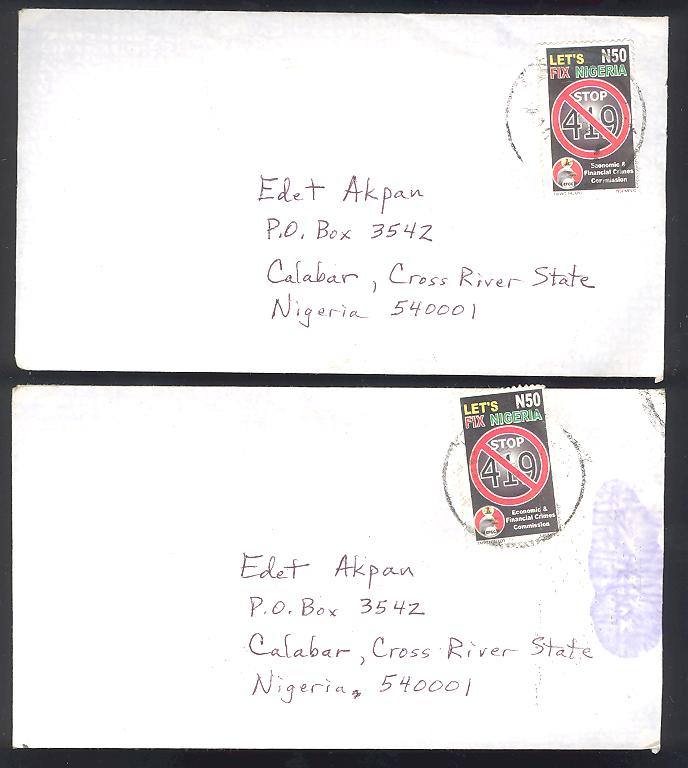 LET'S N50
FIX NIGERIA
STOP
419
Economic &
Financial Crimes
Commission
EFCC
Edet Akpan
P.O. Box 3542
Calabar, Cross River State
Nigeria 540001
LET'S N50
FIX NIGERIA
STOP
419
Economic &
Financial Crimes
Commission
EFCC
Edet Akpan
P.O. Box 3542
Calabar, Cross River State
Nigeria, 540001